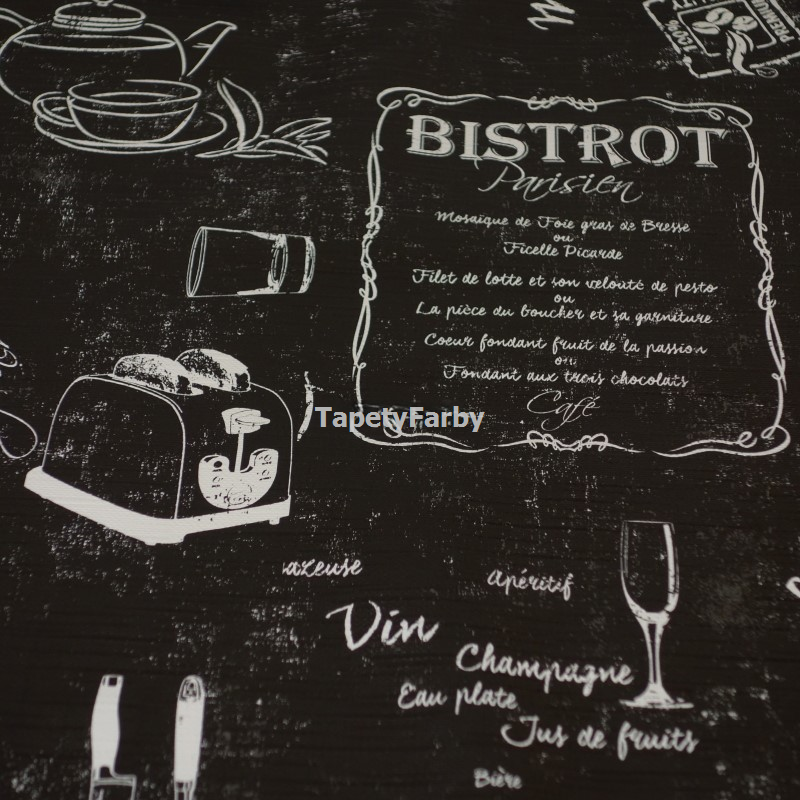 100%
PREMIUM
BISTROT
Parisien
Mosaïque de Foie gras de Bresse
ou
Ficelle Picarde
Filet de lotte et son velouté de pesto
ou
La pièce du boucher et sa garniture
Coeur fondant fruit de la passion
ou
Fondant aux trois chocolats
Café
TapetyFarby
azeuse
Apéritif
Vin
Champagne
Eau plate
Jus de fruits
Bière